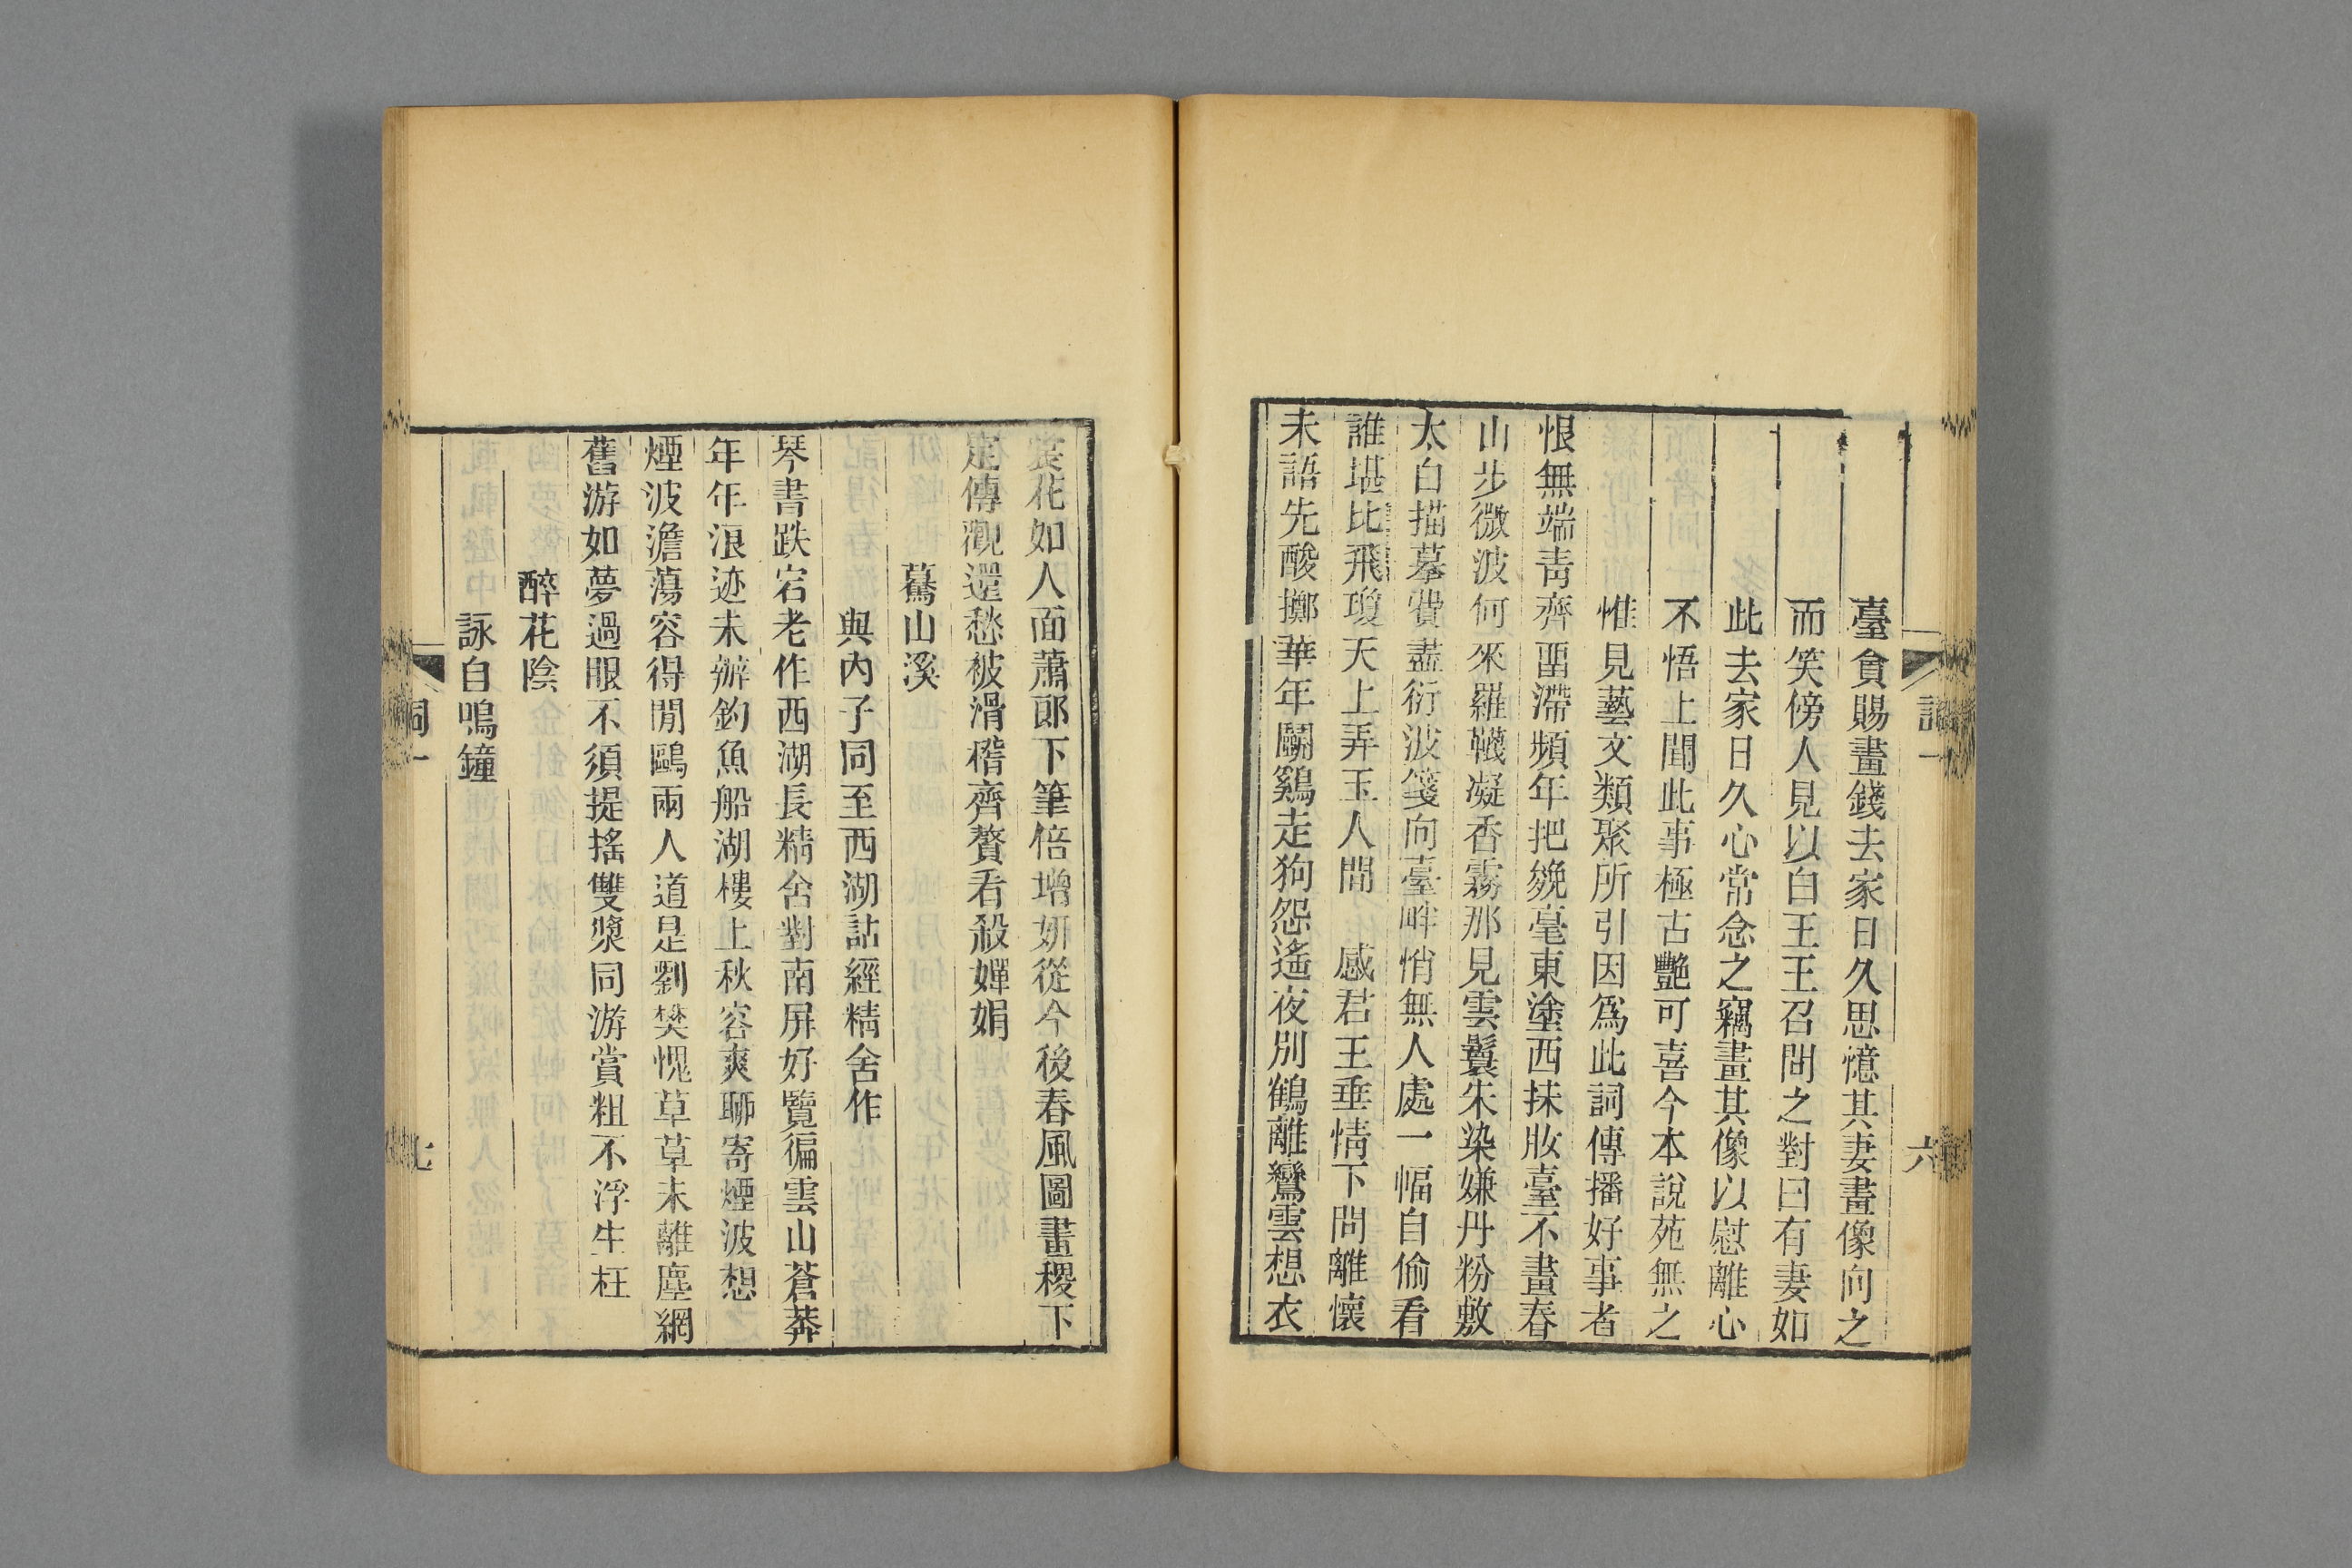 臺貟賜畫錢去家日久思憶其妻畫像向之
而笑傍人見以白王王召問之對曰有妻如
此去家日久心常念之竊畫其像以慰離心
不悟上聞此事極古艷可喜今本說苑無之
惟見藝文類聚所引因爲此詞傳播好事者
恨無端靑齊畱滯頻年把斃毫東塗西抹妝臺不畫春
山步微波何來羅韈凝香霧那見雲鬟朱染嫌丹粉敷
太白描摹費盡衍波箋向臺畔悄無人處一幅自偷看
誰堪比飛瓊天上弄玉人間　感君王垂情下問離懷
未語先酸擲華年鬭鷄走狗怨遙夜別鶴離鸞雲想衣
詞一
六
裳花如人面蕭郎下筆倍增妍從今後春風圖畫稷下
定傳觀還愁被滑稽齊贅看殺嬋娟
驀山溪
與內子同至西湖詁經精舍作
琴書跌宕老作西湖長精舍對南屏好覽徧雲山蒼莽
年年浪迹未辦釣魚船湖樓上秋容爽聊寄煙波想
煙波澹蕩容得閒鷗兩人道是劉樊愧草草未離塵網
舊游如夢過眼不須提搖雙槳同游賞粗不浮生枉
醉花陰
詠自鳴鐘
詞一
七